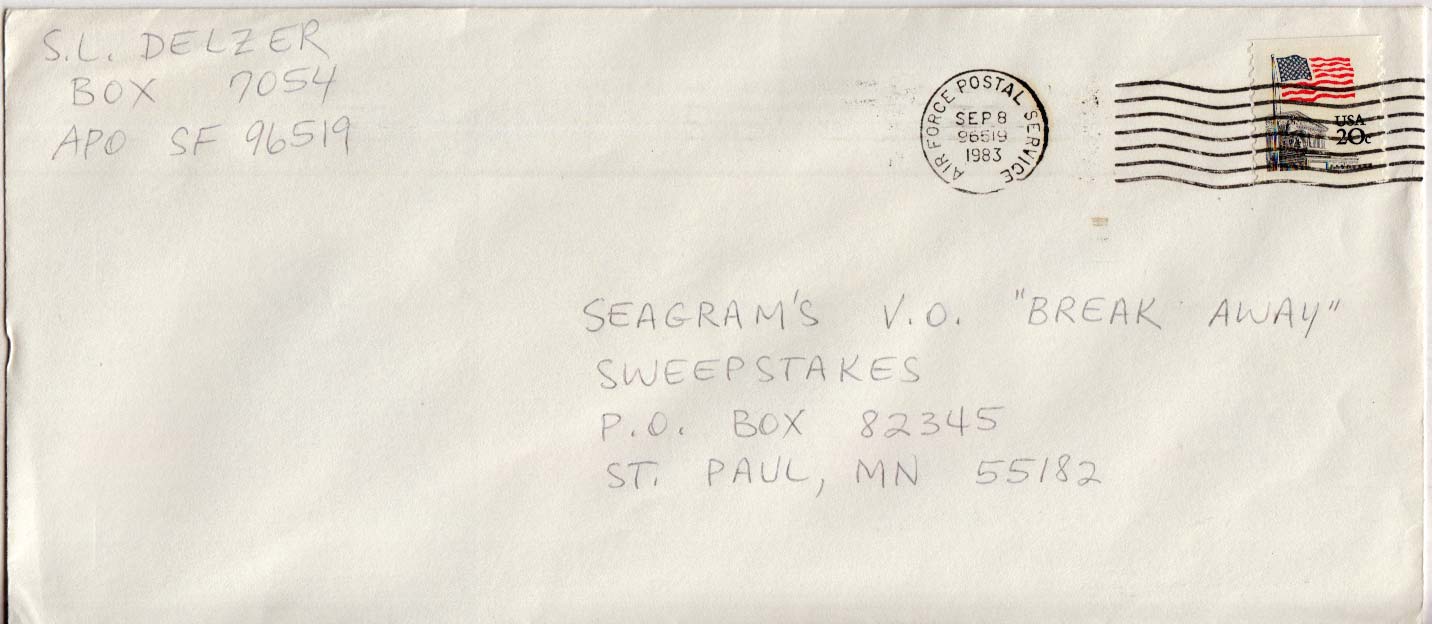 S.L. DELZER
BOX 7054
APO SF 96519
AIR FORCE POSTAL SERVICE
SEP 8
96519
1983
USA
20c
SEAGRAM'S V.O. "BREAK AWAY"
SWEEPSTAKES
P.O. BOX 82345
ST. PAUL, MN 55182